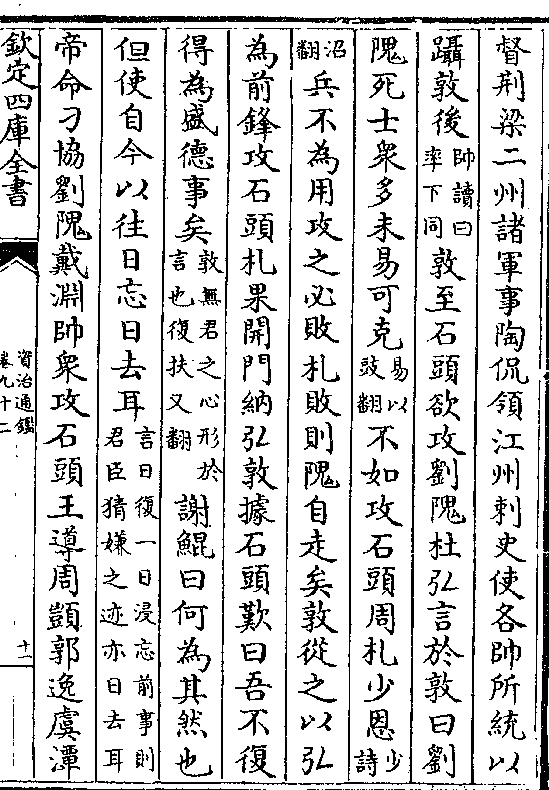 督荆梁二州諸軍事陶侃領江州刺史使各帥所統以
躡敦後帥讀曰率下同敦至石頭欲攻劉隗杜弘言於敦曰劉
隗死士衆多未易可克易以豉翻不如攻石頭周札少恩少詩
沼翻兵不為用攻之必敗札敗則隗自走矣敦從之以弘
為前鋒攻石頭札果開門納弘敦據石頭歎曰吾不復
得為盛德事矣敦無君之心形於言也復扶又翻謝鯤曰何為其然也
但使自今以往日忘日去耳言日復一日浸忘前事則君臣猜嫌之迹亦日去耳
帝命刁協劉隗戴淵帥衆攻石頭王導周顗郭逸虞潭
欽定四庫全書
資治通鑑
卷九十二
十一